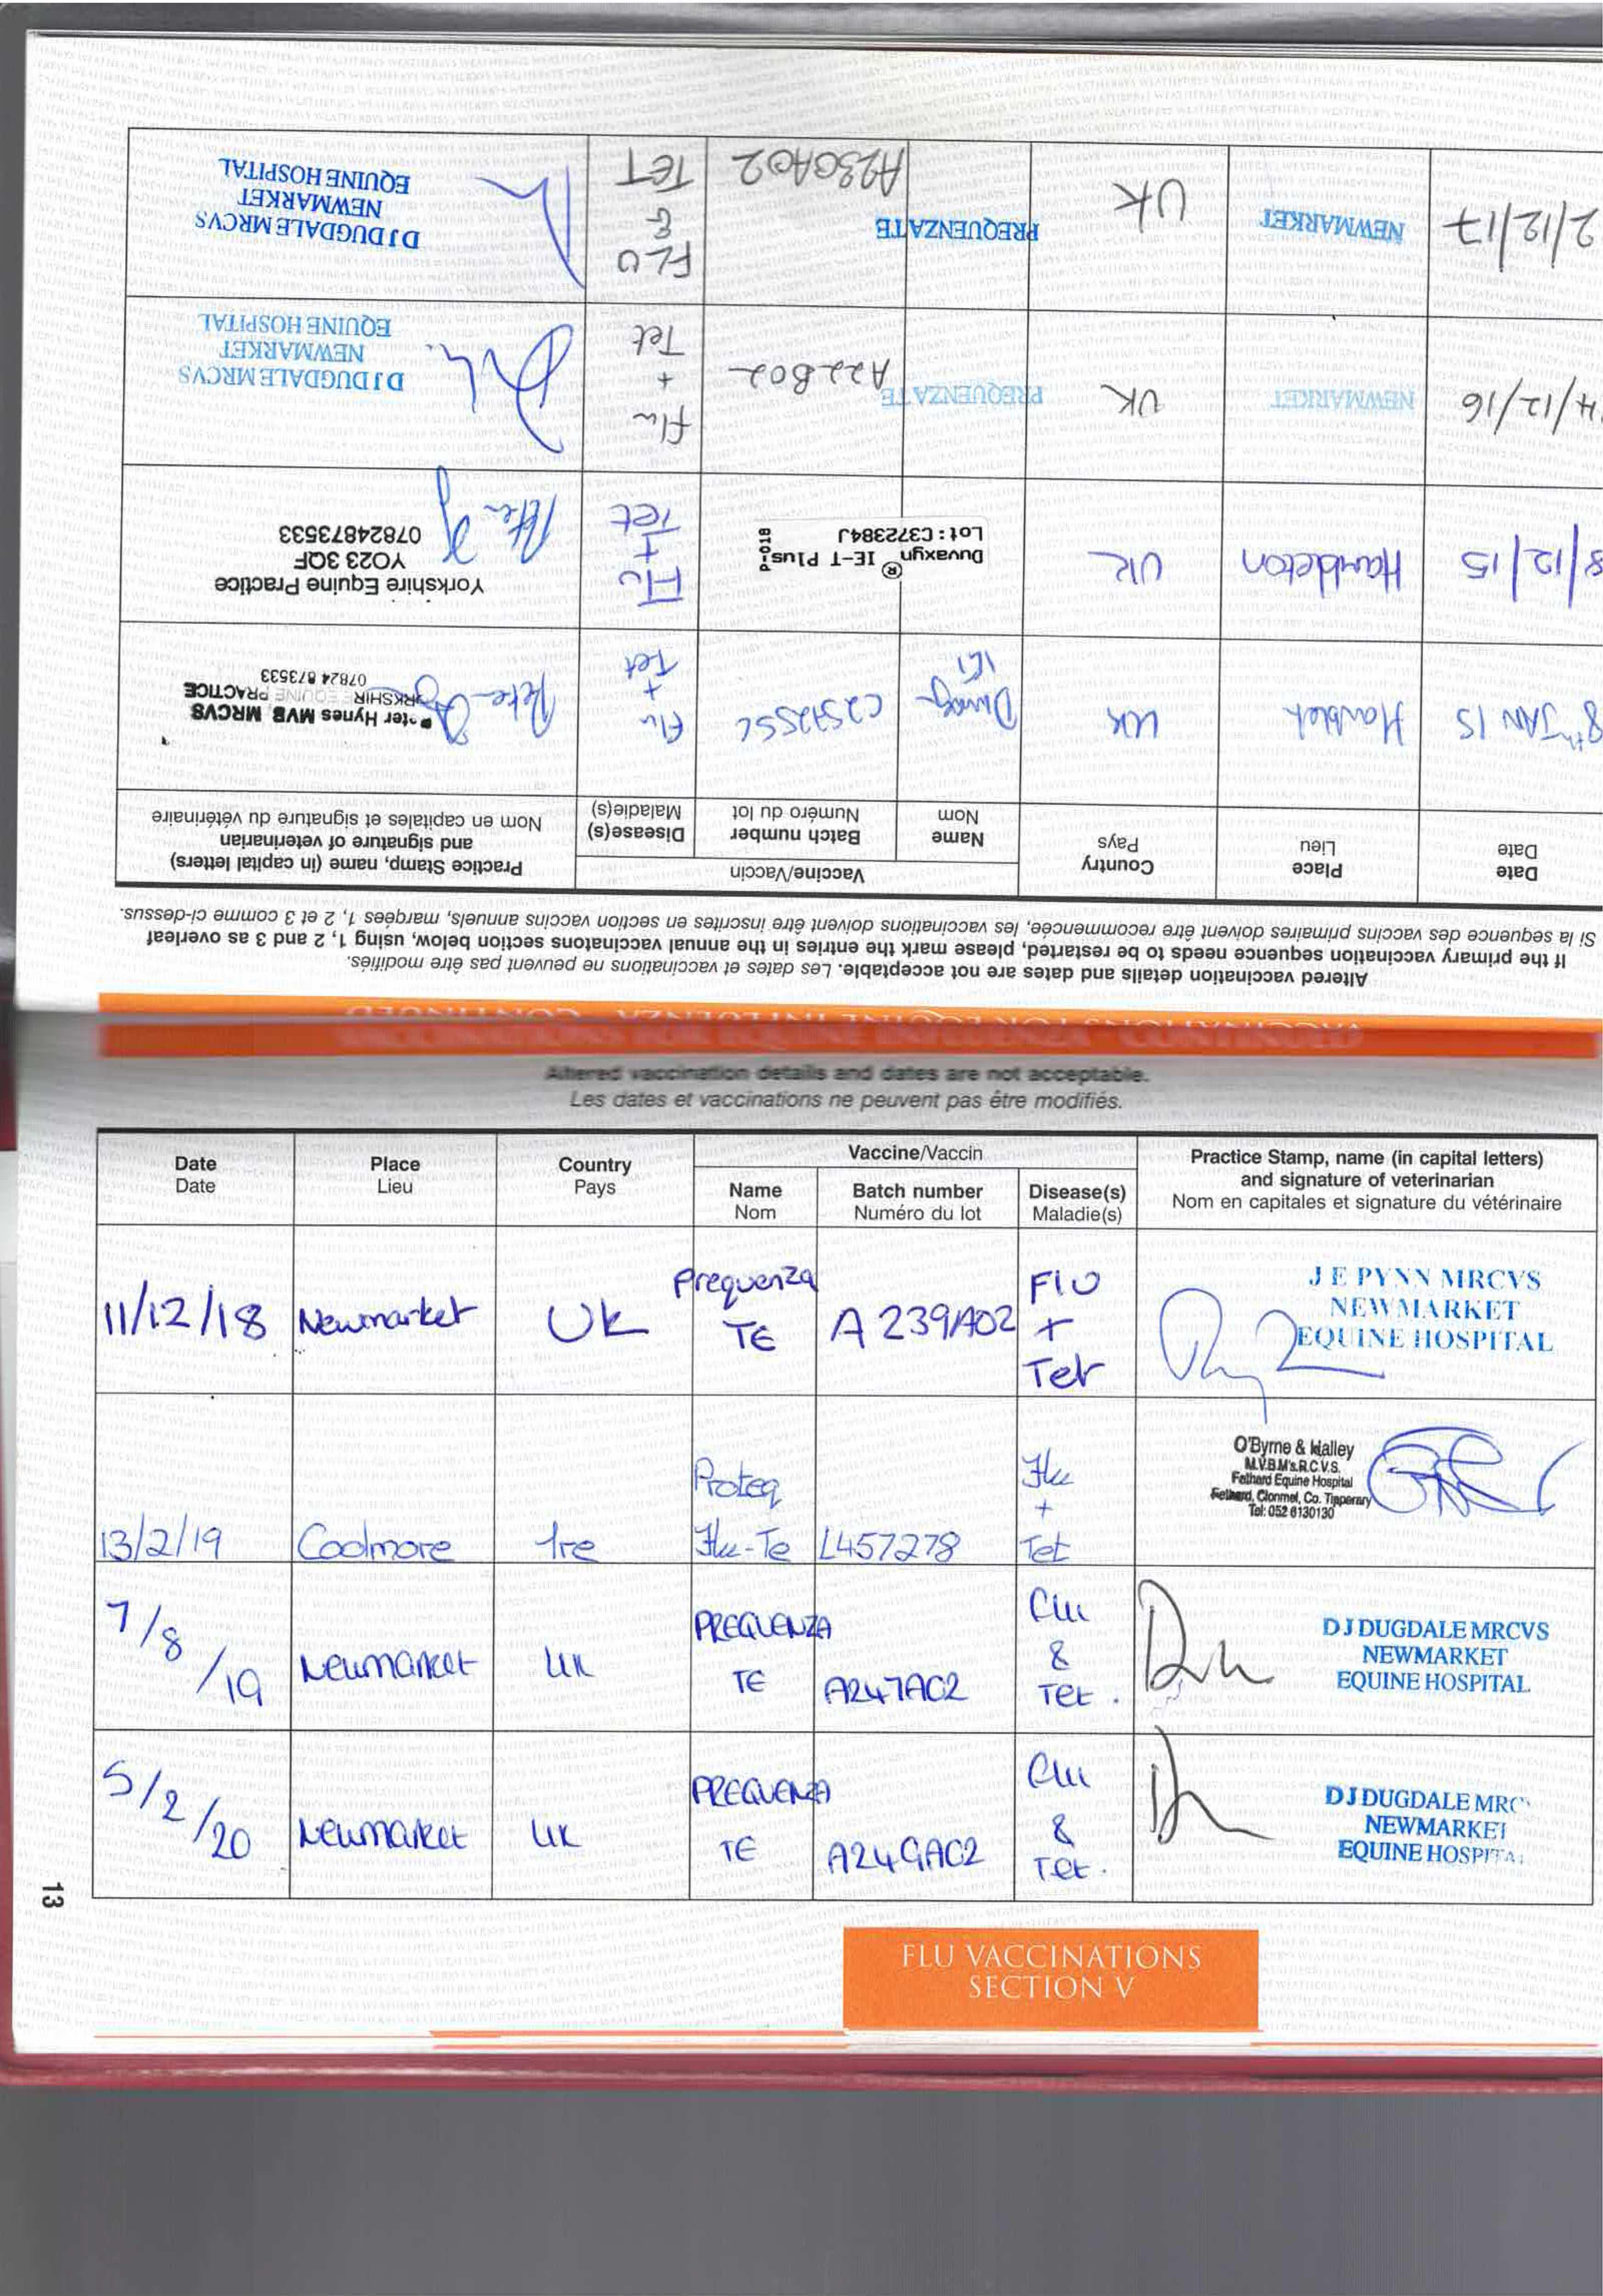 VACCINATIONS FOR EQUINE INFLUENZA - CONTINUED
Altered vaccination details and dates are not acceptable. Les dates et vaccinations ne peuvent pas être modifiés.
If the primary vaccination sequence needs to be restarted, please mark the entries in the annual vaccinatons section below, using 1, 2 and 3 as overleaf
Si la sequence des vaccins primaires doivent être recommencée, les vaccinations doivent être inscrites en section vaccins annuels, marqées 1, 2 et 3 comme ci-dessus.
Date
Date
Place
Lieu
Country
Pays
Vaccine/Vaccin
Name
Nom
Batch number
Numéro du lot
Disease(s)
Maladie(s)
Practice Stamp, name (in capital letters)
and signature of veterinarian
Nom en capitales et signature du vétérinaire
8th JAN 15
UK
IET
C252SSC
Flu
+
Tet
ter Hynes MVB MRCVS
RKSHIRE EQUINE PRACTICE
07824 873533
8/12/15
Hambleton
UK
Duvaxyn® IE-T Plus
P-01B
Lot: C372384J
Flu
+
Tet
Yorkshire Equine Practice
YO23 3QF
07824873533
4/12/16
NEWMARKET
UK
PREQUENZA TE
A22B02
Flu
+
Tet
D J DUGDALE MRCVS
NEWMARKET
EQUINE HOSPITAL
2/12/17
NEWMARKET
UK
PREQUENZA TE
A230A02
FLU
&
TET
D J DUGDALE MRCVS
NEWMARKET
EQUINE HOSPITAL
Altered vaccination details and dates are not acceptable.
Les dates et vaccinations ne peuvent pas être modifiés.
Date
Date
Place
Lieu
Country
Pays
Vaccine/Vaccin
Name
Nom
Batch number
Numéro du lot
Disease(s)
Maladie(s)
Practice Stamp, name (in capital letters)
and signature of veterinarian
Nom en capitales et signature du vétérinaire
11/12/18
Newmarket
UK
Prequenza
TE
A 239A02
Flu
+
Tet
J E PYNN MRCVS
NEWMARKET
EQUINE HOSPITAL
13/2/19
Coolmore
Ire
Proteq
Flu-Te
L457278
Flu
+
Tet
O'Byrne & Halley
M.V.B.M's.R.C.V.S.
Fethard Equine Hospital
Fethard, Clonmel, Co. Tipperary
Tel: 052 6130130
7/8/19
Newmarket
UK
PREQUENZA
TE
A247AC2
Flu
&
Tet.
D J DUGDALE MRCVS
NEWMARKET
EQUINE HOSPITAL
5/2/20
Newmarket
UK
PREQUENZA
TE
A249AC2
Flu
&
Tet.
D J DUGDALE MRC
NEWMARKET
EQUINE HOSPITA
13
FLU VACCINATIONS
SECTION V